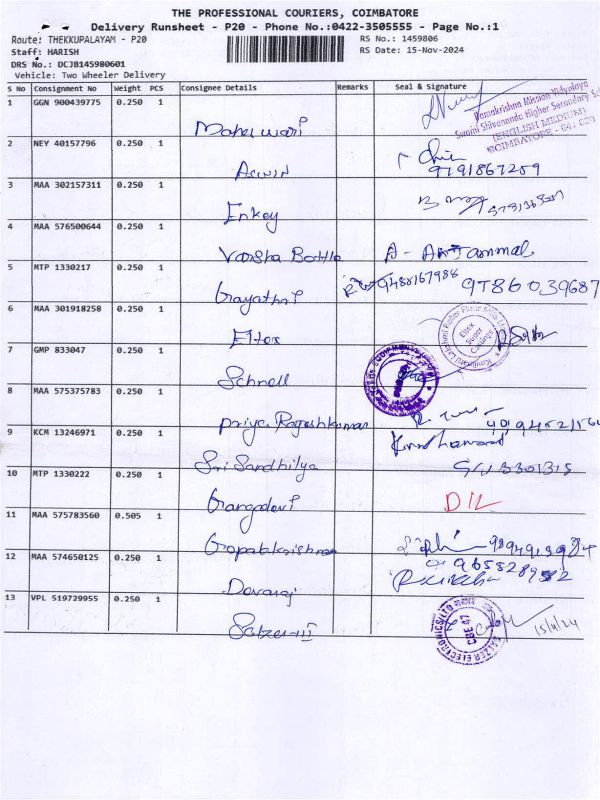 THE PROFESSIONAL COURIERS, COIMBATORE
Delivery Runsheet - P20 - Phone No.:0422-3505555 - Page No.:1
Route: THEKKUPALAYAM - P20
RS No.: 1459806
Staff: HARISH
RS Date: 15-Nov-2024
DRS No.: DCJB145980601
Vehicle: Two Wheeler Delivery
S No Consignment No Weight PCS Consignee Details Remarks Seal & Signature
1 GGN 900439775 0.250 1
Ramakrishna Mission Vidyalaya
Swami Shivananda Higher Secondary Sc
(ENGLISH MEDIUM)
COIMBATORE - 641 020
Maheswari
2 NEY 40157796 0.250 1
Aswin 9791867259
3 MAA 302157311 0.250 1
Enkey
4 MAA 576500644 0.250 1
Varsha Bottle A-
5 MTP 1330217 0.250 1
Gayathri 9486167988 9786039687
6 MAA 301918258 0.250 1
Eltex
Eltex Super Castings
7 GMP 833047 0.250 1
Schnell
8 MAA 575375783 0.250 1
Priya Rajeshkumar
9 KCM 13246971 0.250 1
Sri Sandhilya
10 MTP 1330222 0.250 1
Gangadevi DIL
11 MAA 575783560 0.505 1
Gopalakrishnan
12 MAA 574650125 0.250 1
Devaraj
13 VPL 519729955 0.250 1
Salzer-III 15/11/24
SALZER ELECTRONICS LTD
CBE 47